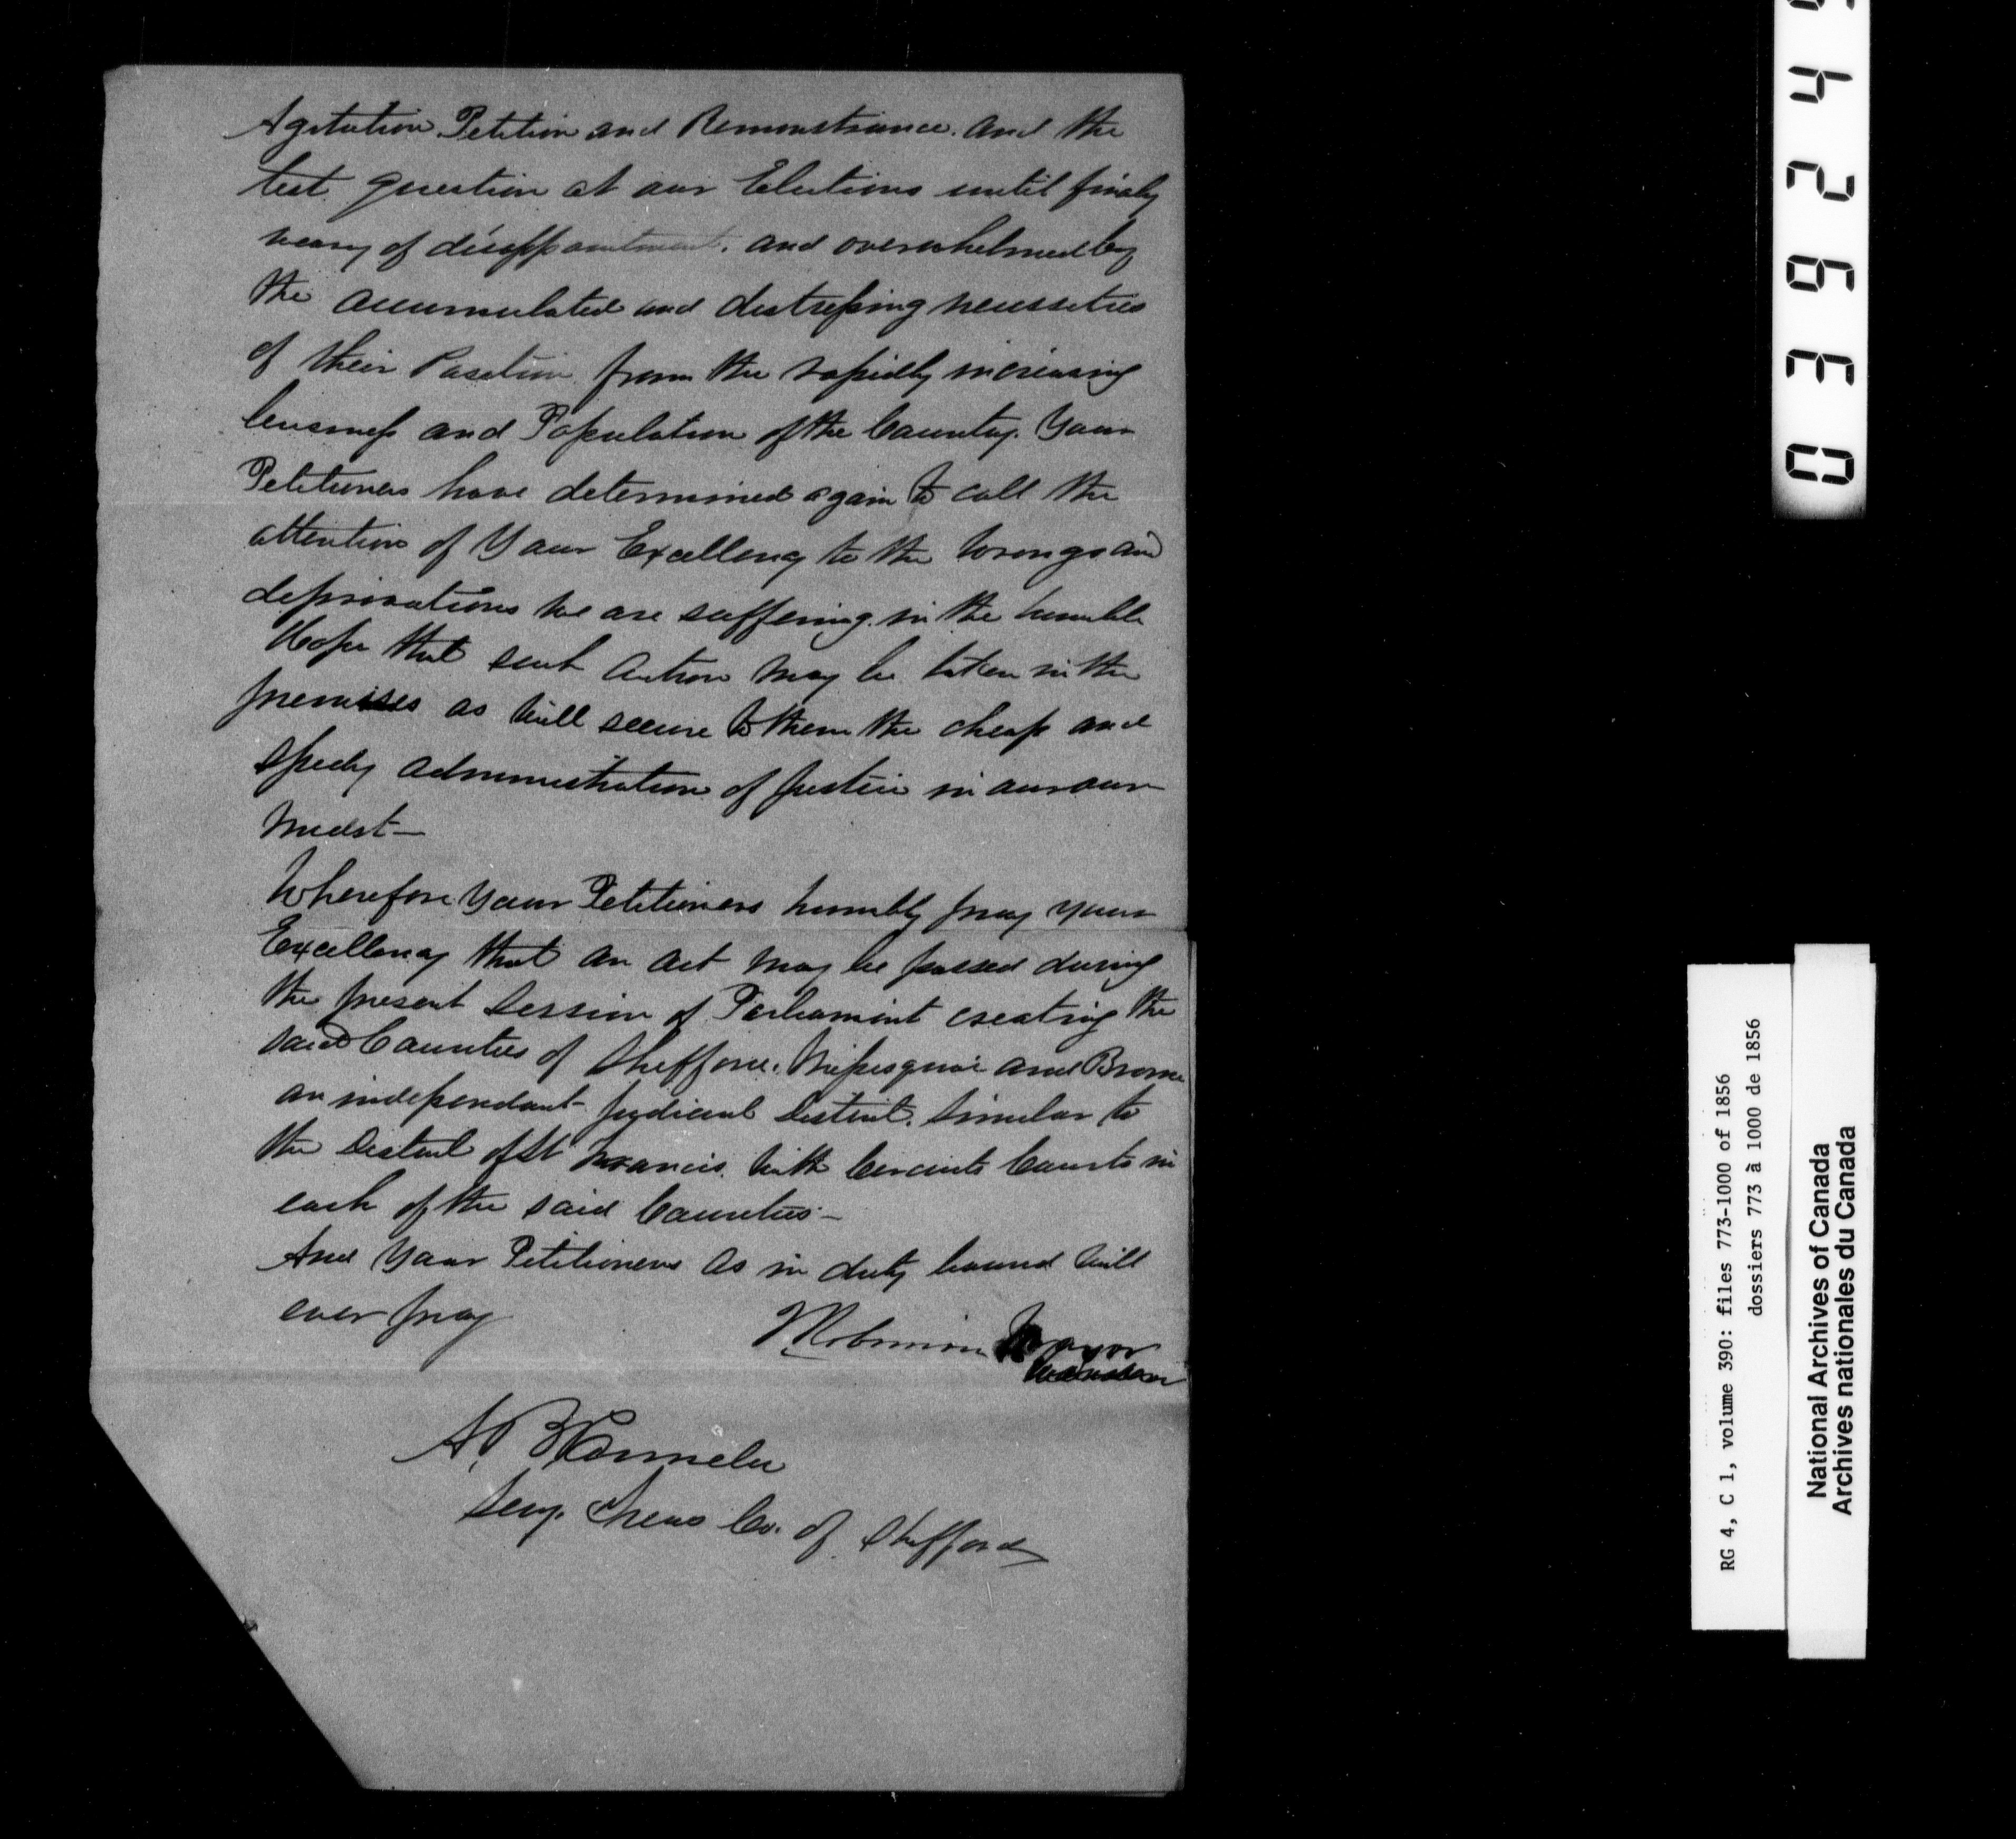 Agitation Petition and Remonstrance. and the
test question at our Elections until finaly
weary of disappointment. and overwhelmed by
the accumulated and distressing necessities
of their Position from the rapidly increasing
business and Population of the County. Your
Petitioners have determined again to call the
attention of Your Excellency to the wrongs and
deprivations we are suffering in the humble
Hope that such action may be taken in the
premises as will secure to them the cheap and
speedy administration of Justice in our own
Midst—
Wherefore Your Petitioners humbly pray your
Excellency that an act may be passed during
the present Session of Parliament creating the
said Counties of Shefford. Missisquoi and Brome
an independant Judicial District. Similar to
the District of St Francis. with Circuits Courts in
each of the said Counties—
And Your Petitioners as in duty bound will
ever pray
Robinson Mayor
A. B. Parmelee
Secy. Treas Co. of Shefford
03924
RG 4, C 1, volume 390: files 773-1000 of 1856
dossiers 773 à 1000 de 1856
National Archives of Canada
Archives nationales du Canada